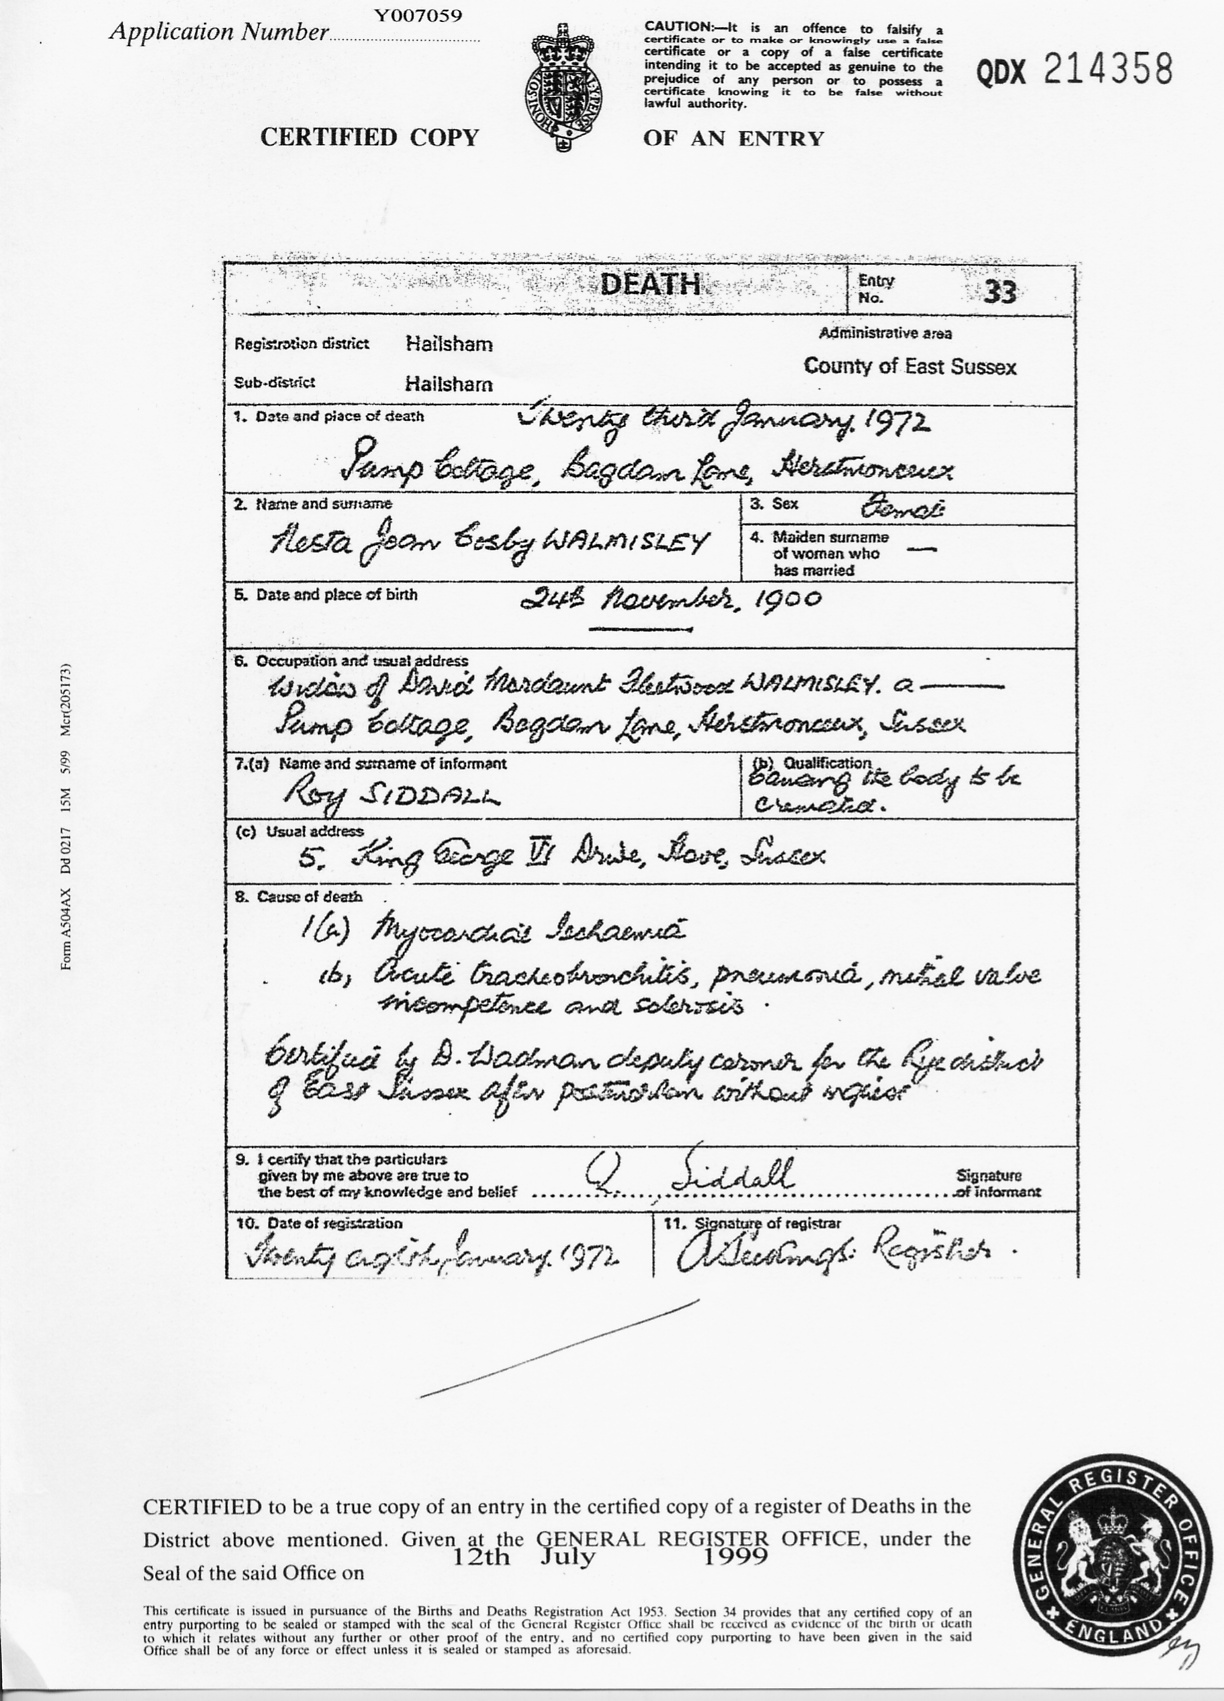 Application Number Y007059
CAUTION:—It is an offence to falsify a
certificate or to make or knowingly use a false
certificate or a copy of a false certificate
intending it to be accepted as genuine to the
prejudice of any person or to possess a
certificate knowing it to be false without
lawful authority.
QDX 214358
CERTIFIED COPY OF AN ENTRY
DEATH
Entry No. 33
Registration district Hailsham
Administrative area
Sub-district Hailsham
County of East Sussex
1. Date and place of death Twenty third January, 1972
Pump Cottage, Bagdam Lane, Herstmonceux
2. Name and surname
Nesta Joan Cosby WALMISLEY
3. Sex Female
4. Maiden surname
of woman who —
has married
5. Date and place of birth 24th November, 1900
6. Occupation and usual address
Widow of David Mordaunt Fleetwood WALMISLEY. a
Pump Cottage, Bagdam Lane, Herstmonceux, Sussex
7.(a) Name and surname of informant
Roy SIDDALL
(b) Qualification
Causing the body to be
cremated.
(c) Usual address
5, King George VI Drive, Hove, Sussex
8. Cause of death
1(a) Myocardial Ischaemia
(b) Acute tracheobronchitis, pneumonia, mitral valve
incompetence and sclerosis.
Certified by D. Wadman deputy coroner for the Rye district
of East Sussex after postmortem without inquest
9. I certify that the particulars
given by me above are true to
the best of my knowledge and belief
Siddall
Signature
of informant
10. Date of registration
Twenty eighth January, 1972
11. Signature of registrar
Registrar.
CERTIFIED to be a true copy of an entry in the certified copy of a register of Deaths in the
District above mentioned. Given at the GENERAL REGISTER OFFICE, under the
Seal of the said Office on 12th July 1999
This certificate is issued in pursuance of the Births and Deaths Registration Act 1953. Section 34 provides that any certified copy of an
entry purporting to be sealed or stamped with the seal of the General Register Office shall be received as evidence of the birth or death
to which it relates without any further or other proof of the entry, and no certified copy purporting to have been given in the said
Office shall be of any force or effect unless it is sealed or stamped as aforesaid.
GENERAL REGISTER OFFICE
ENGLAND
Form A504AX Dd 0217 15M 5/99 Mcr(205173)